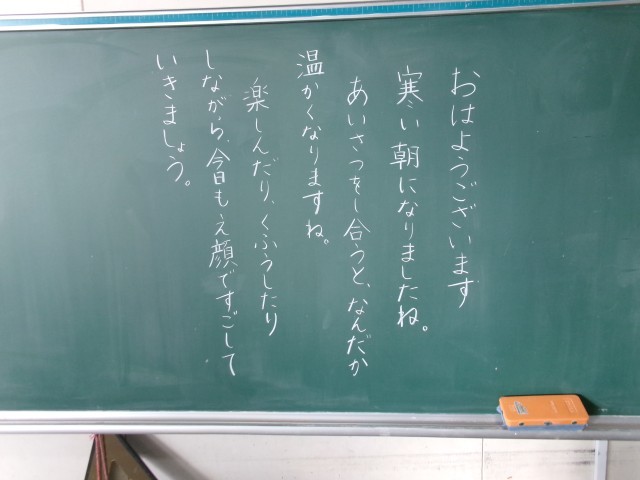 おはようございます
寒い朝になりましたね。
あいさつをし合うと、なんだか
温かくなりますね。
楽しんだり、くふうしたり
しながら、今日もえ顔ですごして
いきましょう。